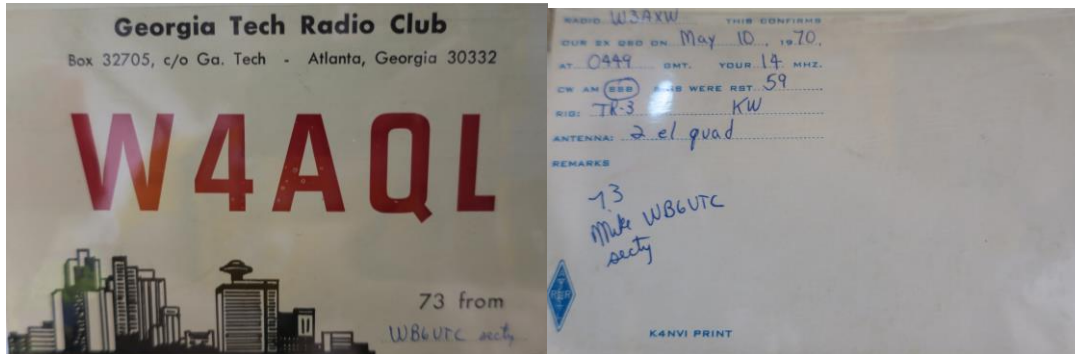 Georgia Tech Radio Club
Box 32705, c/o Ga. Tech - Atlanta, Georgia 30332
W4AQL
73 from
WB6UTC secty
RADIO W3AXW THIS CONFIRMS
OUR 2X QSO ON May 10, 1970,
AT 0449 GMT. YOUR 14 MHZ.
CW AM SSB SIGS WERE RST 59
RIG: TR-3 KW
ANTENNA: 2 el quad
REMARKS
73
Mike WB6UTC
secty
K4NVI PRINT